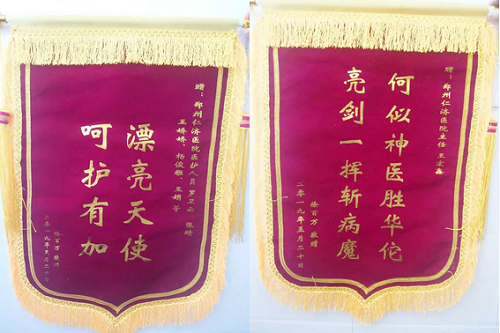 赠：郑州仁济医院医护人员罗卫云 张晴
王娇娇、杨俊雅、王娟等
漂亮天使
呵护有加
徐百万敬赠
二零一九年五月二十日
赠：郑州仁济医院主任 王宏鑫
何似神医胜华佗
亮剑一挥斩病魔
徐百万敬赠
二零一九年五月二十日